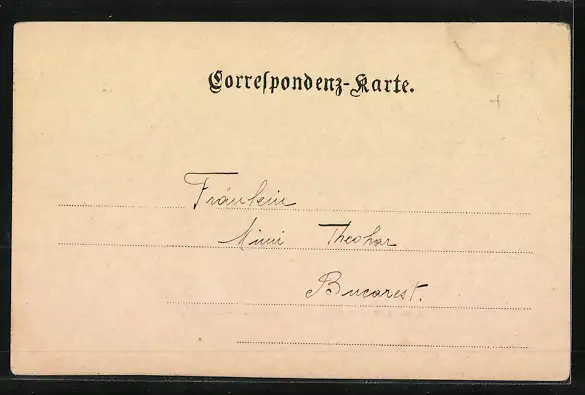 Correspondenz-Karte.
Fräulein
Mimi Theohar
Bucarest.